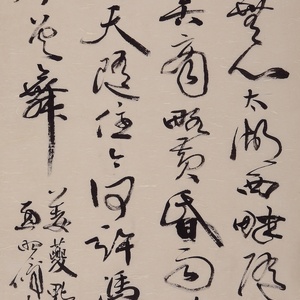 無心太湖西畔隨
苦商略黃昏雨
天隨住今何許馮
差舞
姜夔點